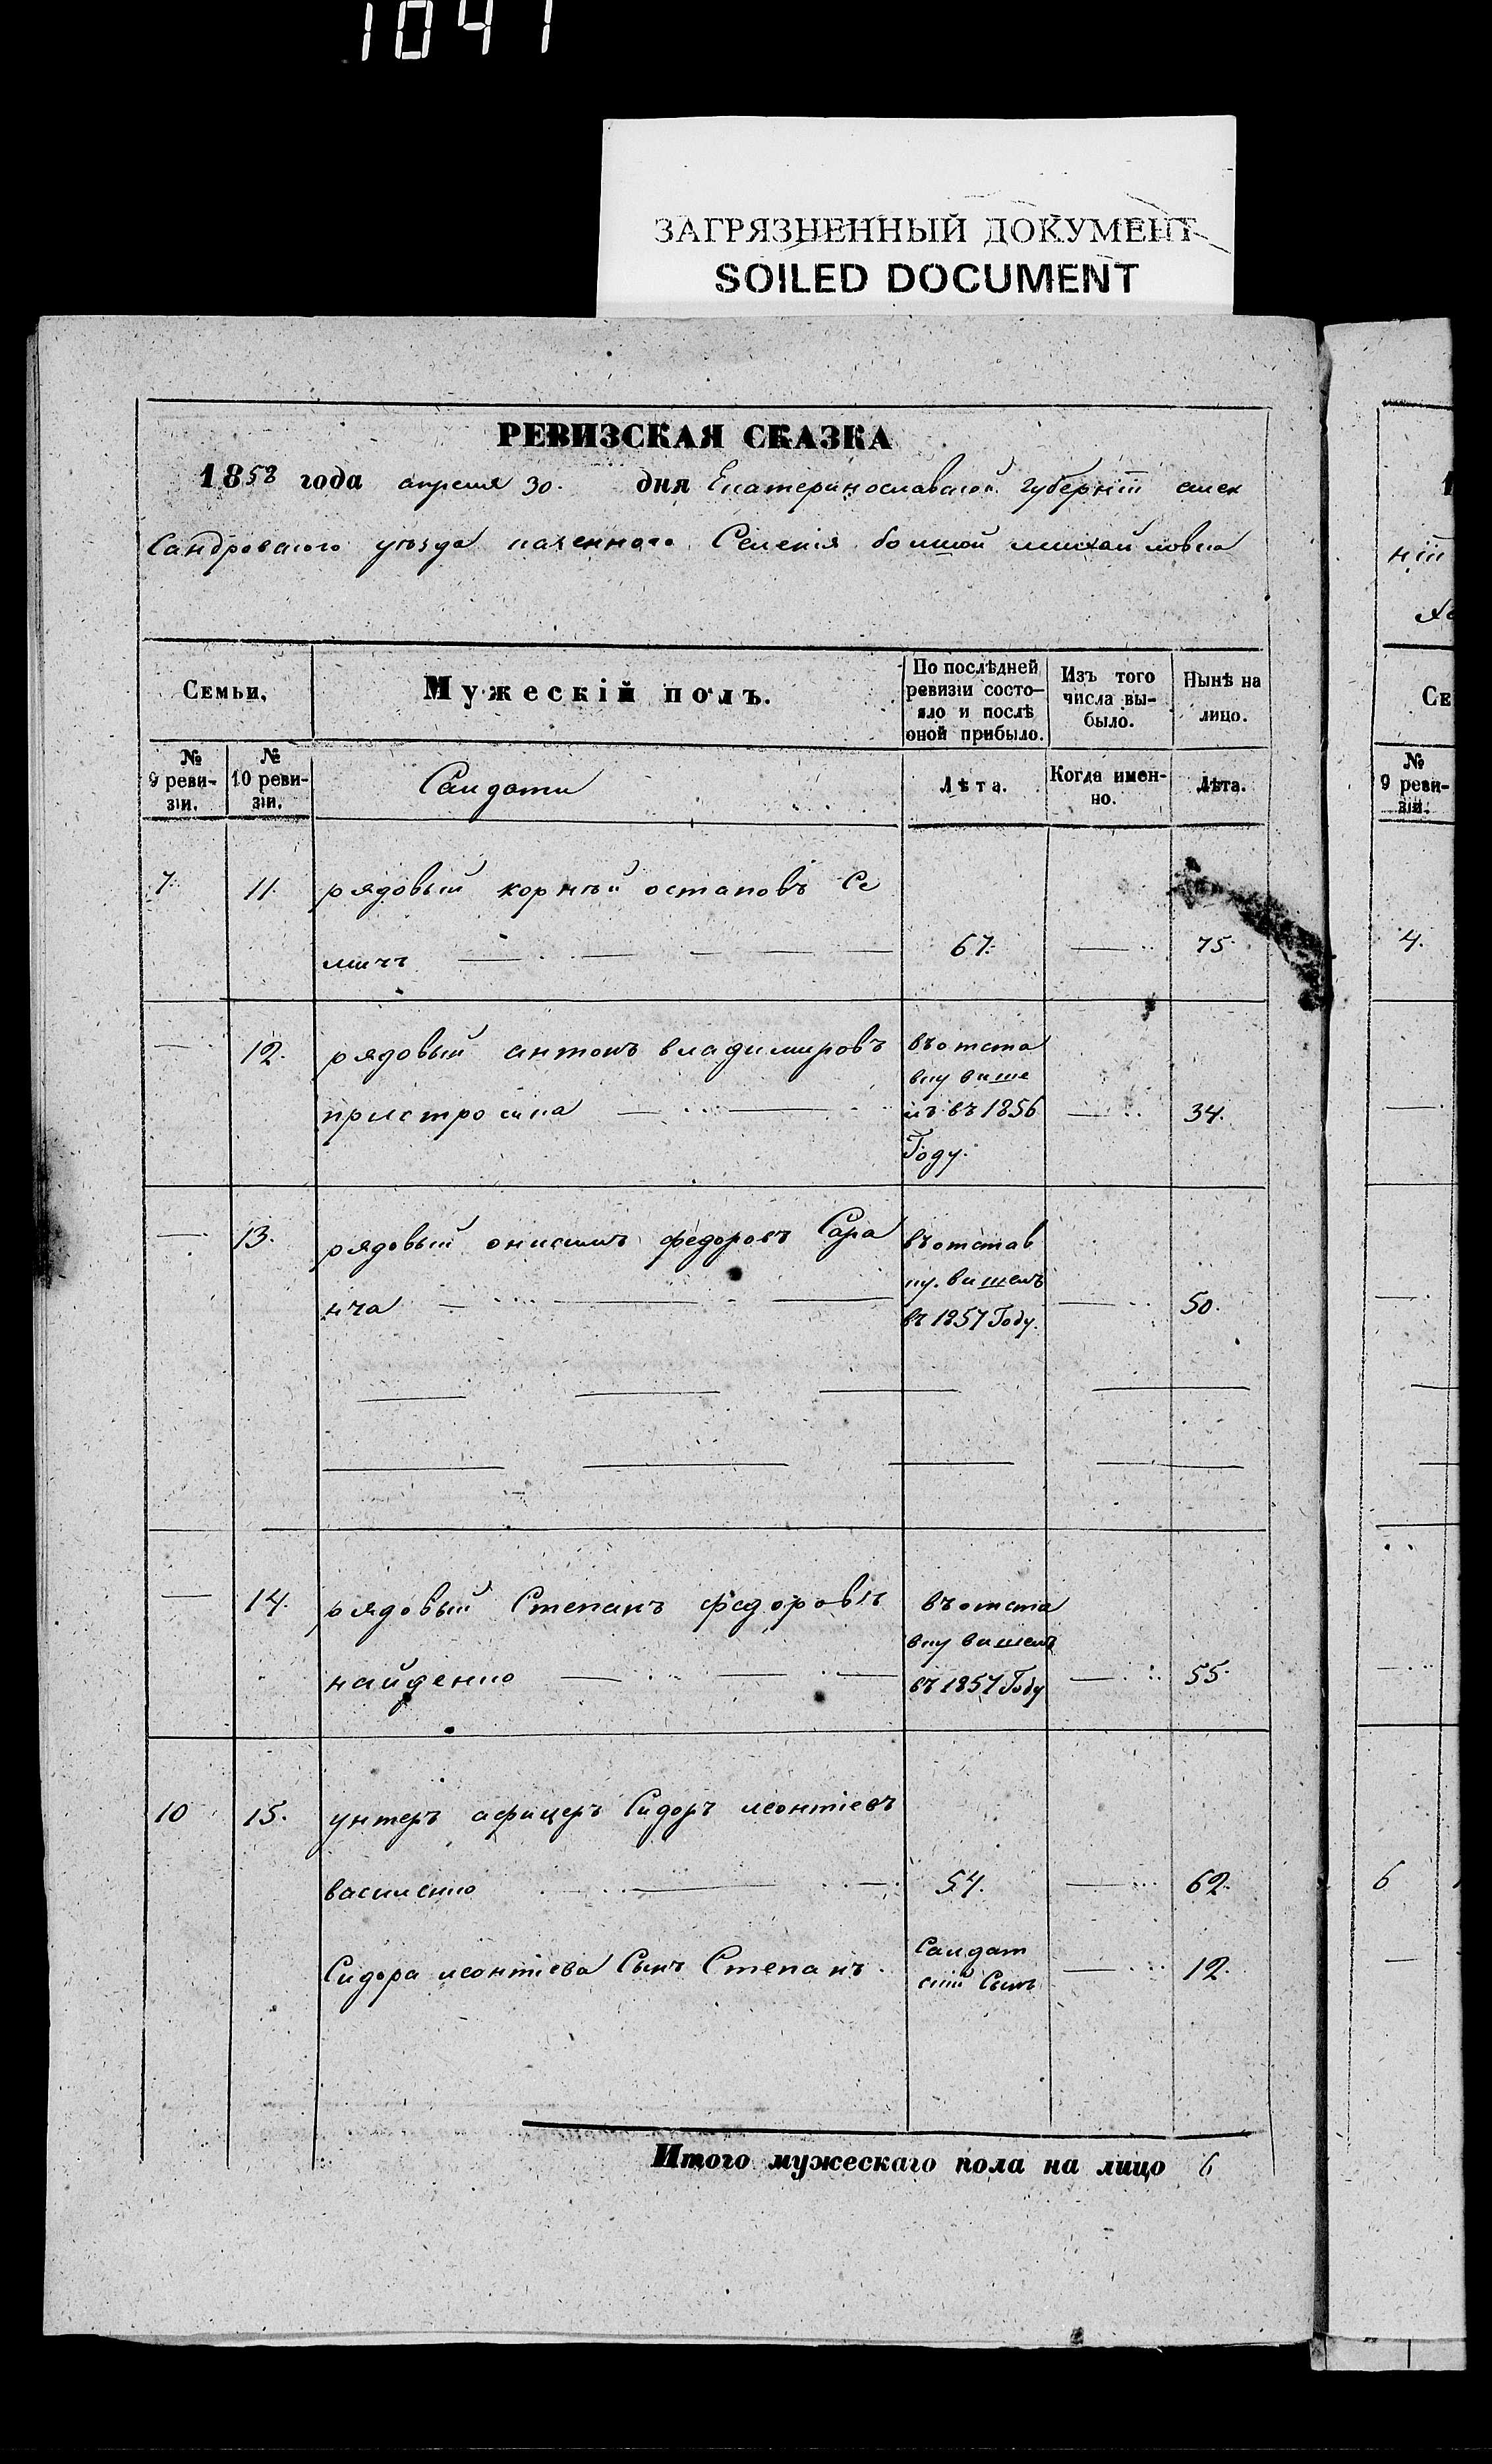 1041
ЗАГРЯЗНЕННЫЙ ДОКУМЕНТ
SOILED DOCUMENT
РЕВИЗСКАЯ СКАЗКА
1858 года апреля 30. дня Екатеринославской Губерніи алек
Сандровского уѣзда казенного Селенія болшой михайловка
Семьи.
Мужескій полъ.
По послѣдней ревизіи состояло и послѣ оной прибыло.
Изъ того числа выбыло.
Ныне на лицо.
№ 9 ревизіи.
№ 10 ревизіи.
Салдати
Лѣта.
Когда именно.
Лѣта.
7. 11. рядовый корнѣй остаповъ Се
мичъ 67. 75.
12. рядовый антонъ владимировъ въ отста
вку више
пристро лъ въ 1856 34.
Году.
13. рядовый онисимъ федоровъ Сара въ отстав
ку. вишелъ
нча 50.
въ 1857 Году.
14. рядовый Степанъ федоровъ въ отста
вку вишелъ
найденко въ 1857 Году 55.
10 15. унтеръ афицеръ Сидоръ леонтіевъ
василенко 54. 62.
Сидора леонтіева Сынъ Степанъ Салдат 12.
скій Сынъ
Итого мужескаго пола на лицо 6
ніи
Се
№ 9 ревизіи.
4.
6